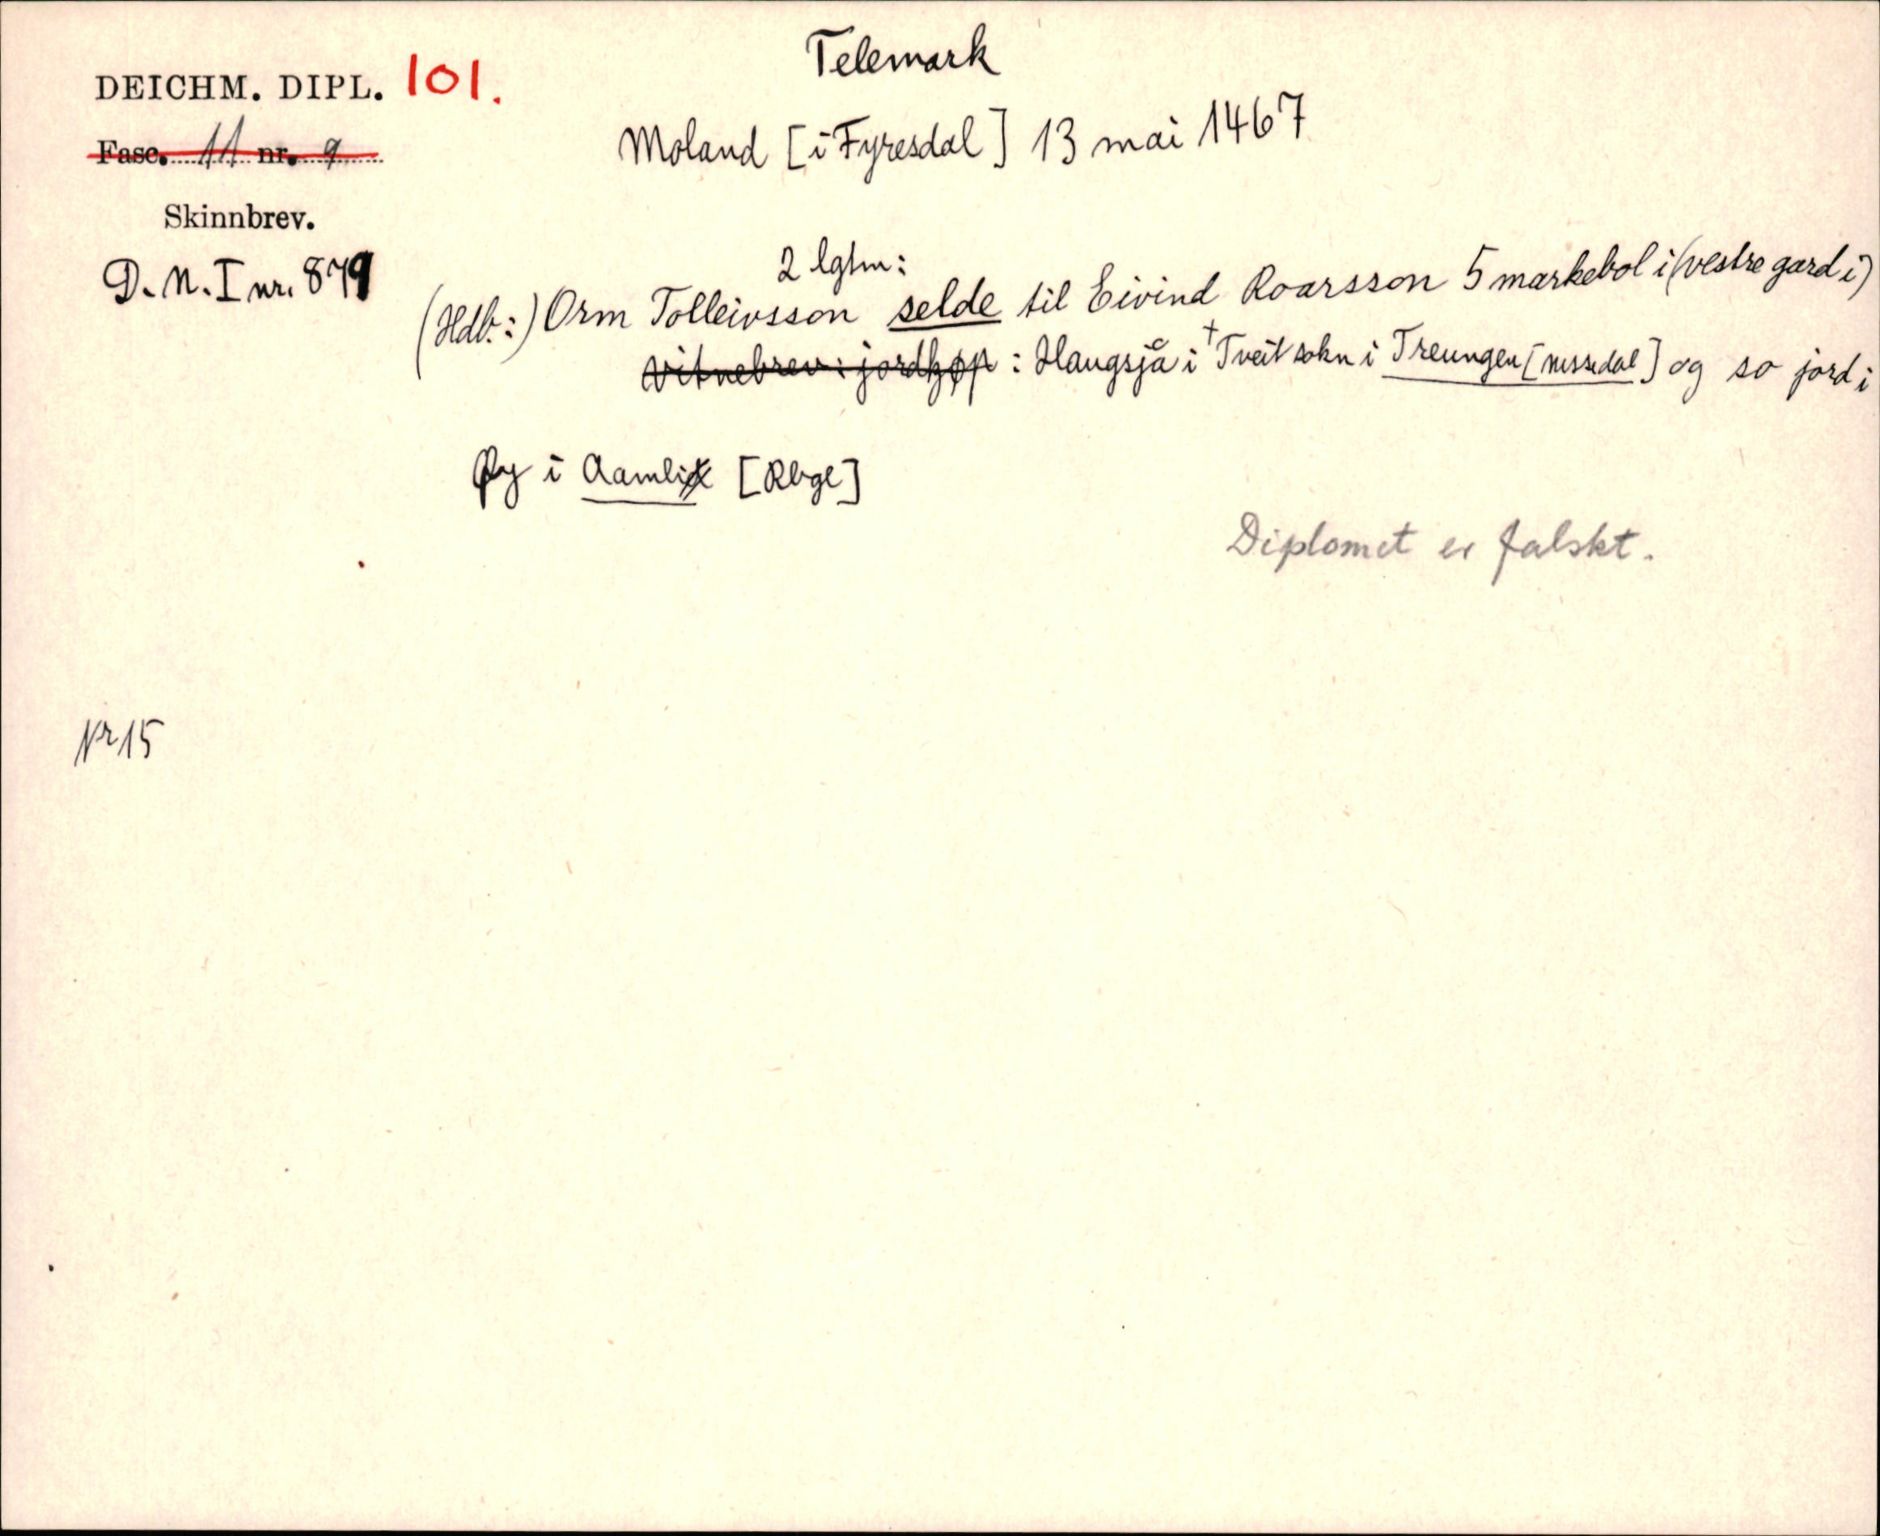 Telemark
DEICHM. DIPL. 101.
Moland [i Fyresdal] 13 mai 1467
Fasc. 11 nr. 9
Skinnbrev.
D. N. I nr. 879
2 lgtm:
(Hdb:) Orm Tolleivsson selde til Eivind Roarsson 5 markebol i (vestre gard i)
Vitnebrev: jordkjøp : Haugsjå i †Tveit sokn i Treungen [Nissedal] og so jord i
Øy i Aamli [Rbgl]
Diplomet er falskt.
Nr 15